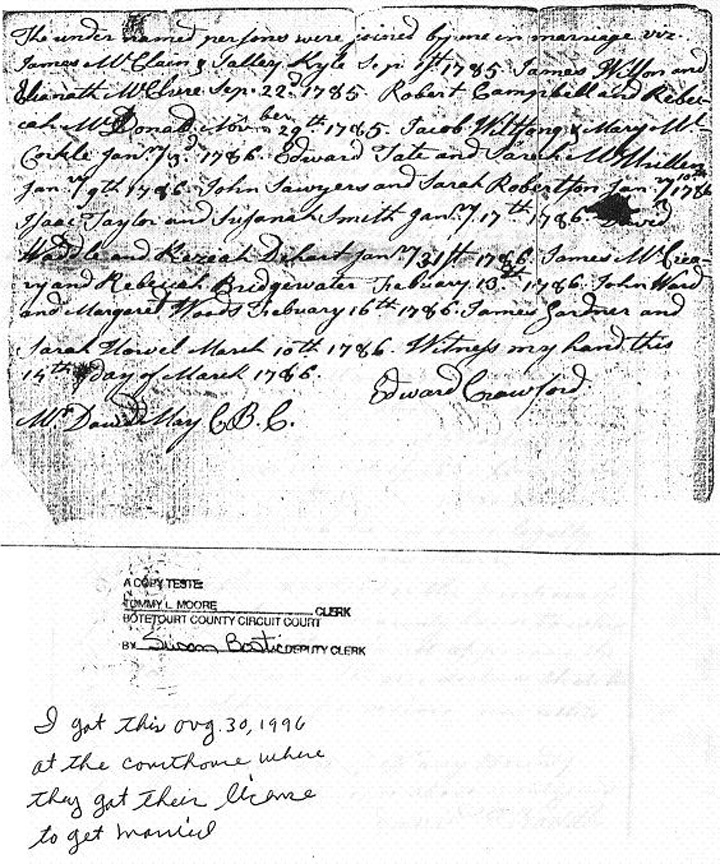 The under named persons were joined by me in marriage viz.
James McClain & Salley Kyle Sep. 1st 1785. James Wilson and
McClure Sep. 22d 1785. Robert Campbell and Rebec-
cah McDonald Novber 29th 1785. Jacob Wiltfang & Mary Mc
Corkle Jany 3d 1786. Edward Tate and Sarah McMullen
Jany 9th 1786. John Sawyers and Sarah Robertson Jany 10th 1786
Isaac Taylor and Susanah Smith Jany 17th 1786. David
Waddle and Keziah Dehart Jany 31st 1786. James McCrea-
ry and Rebecah Bridgewater Febuary 13th 1786. John Ward
and Margaret Woods Febuary 16th 1786. James Gardner and
Sarah Howel March 10th 1786. Witness my hand this
14th day of March 1786.
Edward Crawford
Mr David May C.B.C.
A COPY TESTE:
TOMMY L. MOORE CLERK
BOTETOURT COUNTY CIRCUIT COURT
BY Susan Bostic DEPUTY CLERK
I got this Aug. 30, 1996
at the courthouse where
they got their license
to get married